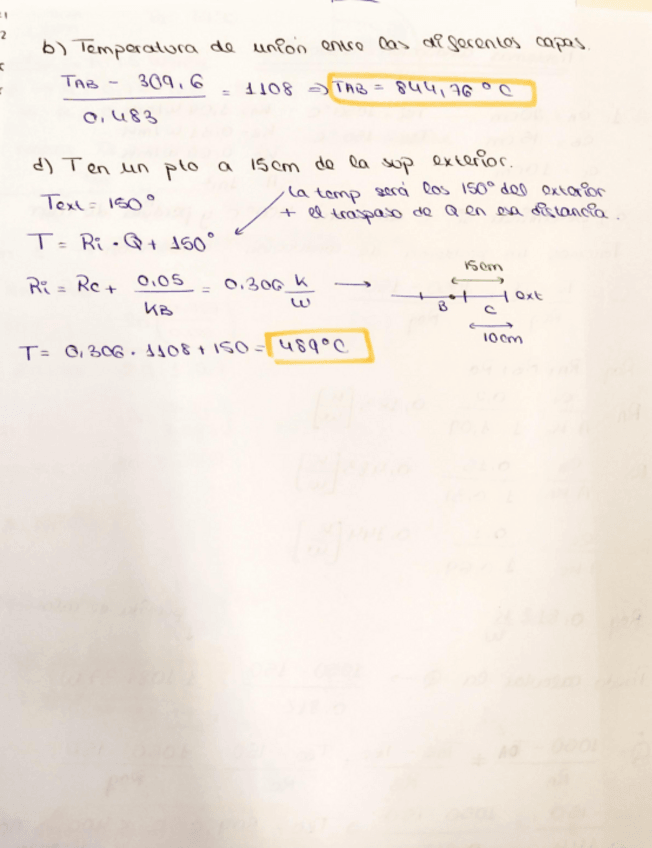 b) Temperatura de unión entre las diferentes capas.
TAB - 309,6 / 0,483 = 1108 ⇒ TAB = 844,76 °C
d) T en un pto a 15cm de la sup exterior.
Text = 150°
La temp será los 150° del exterior
+ el traspaso de Q en esa distancia.
T = Ri · Q + 150°
Ri = Rc + 0,05 / KB = 0.306 k / w →
15cm
B C ext
10cm
T = 0,306 · 1108 + 150 = 489°C